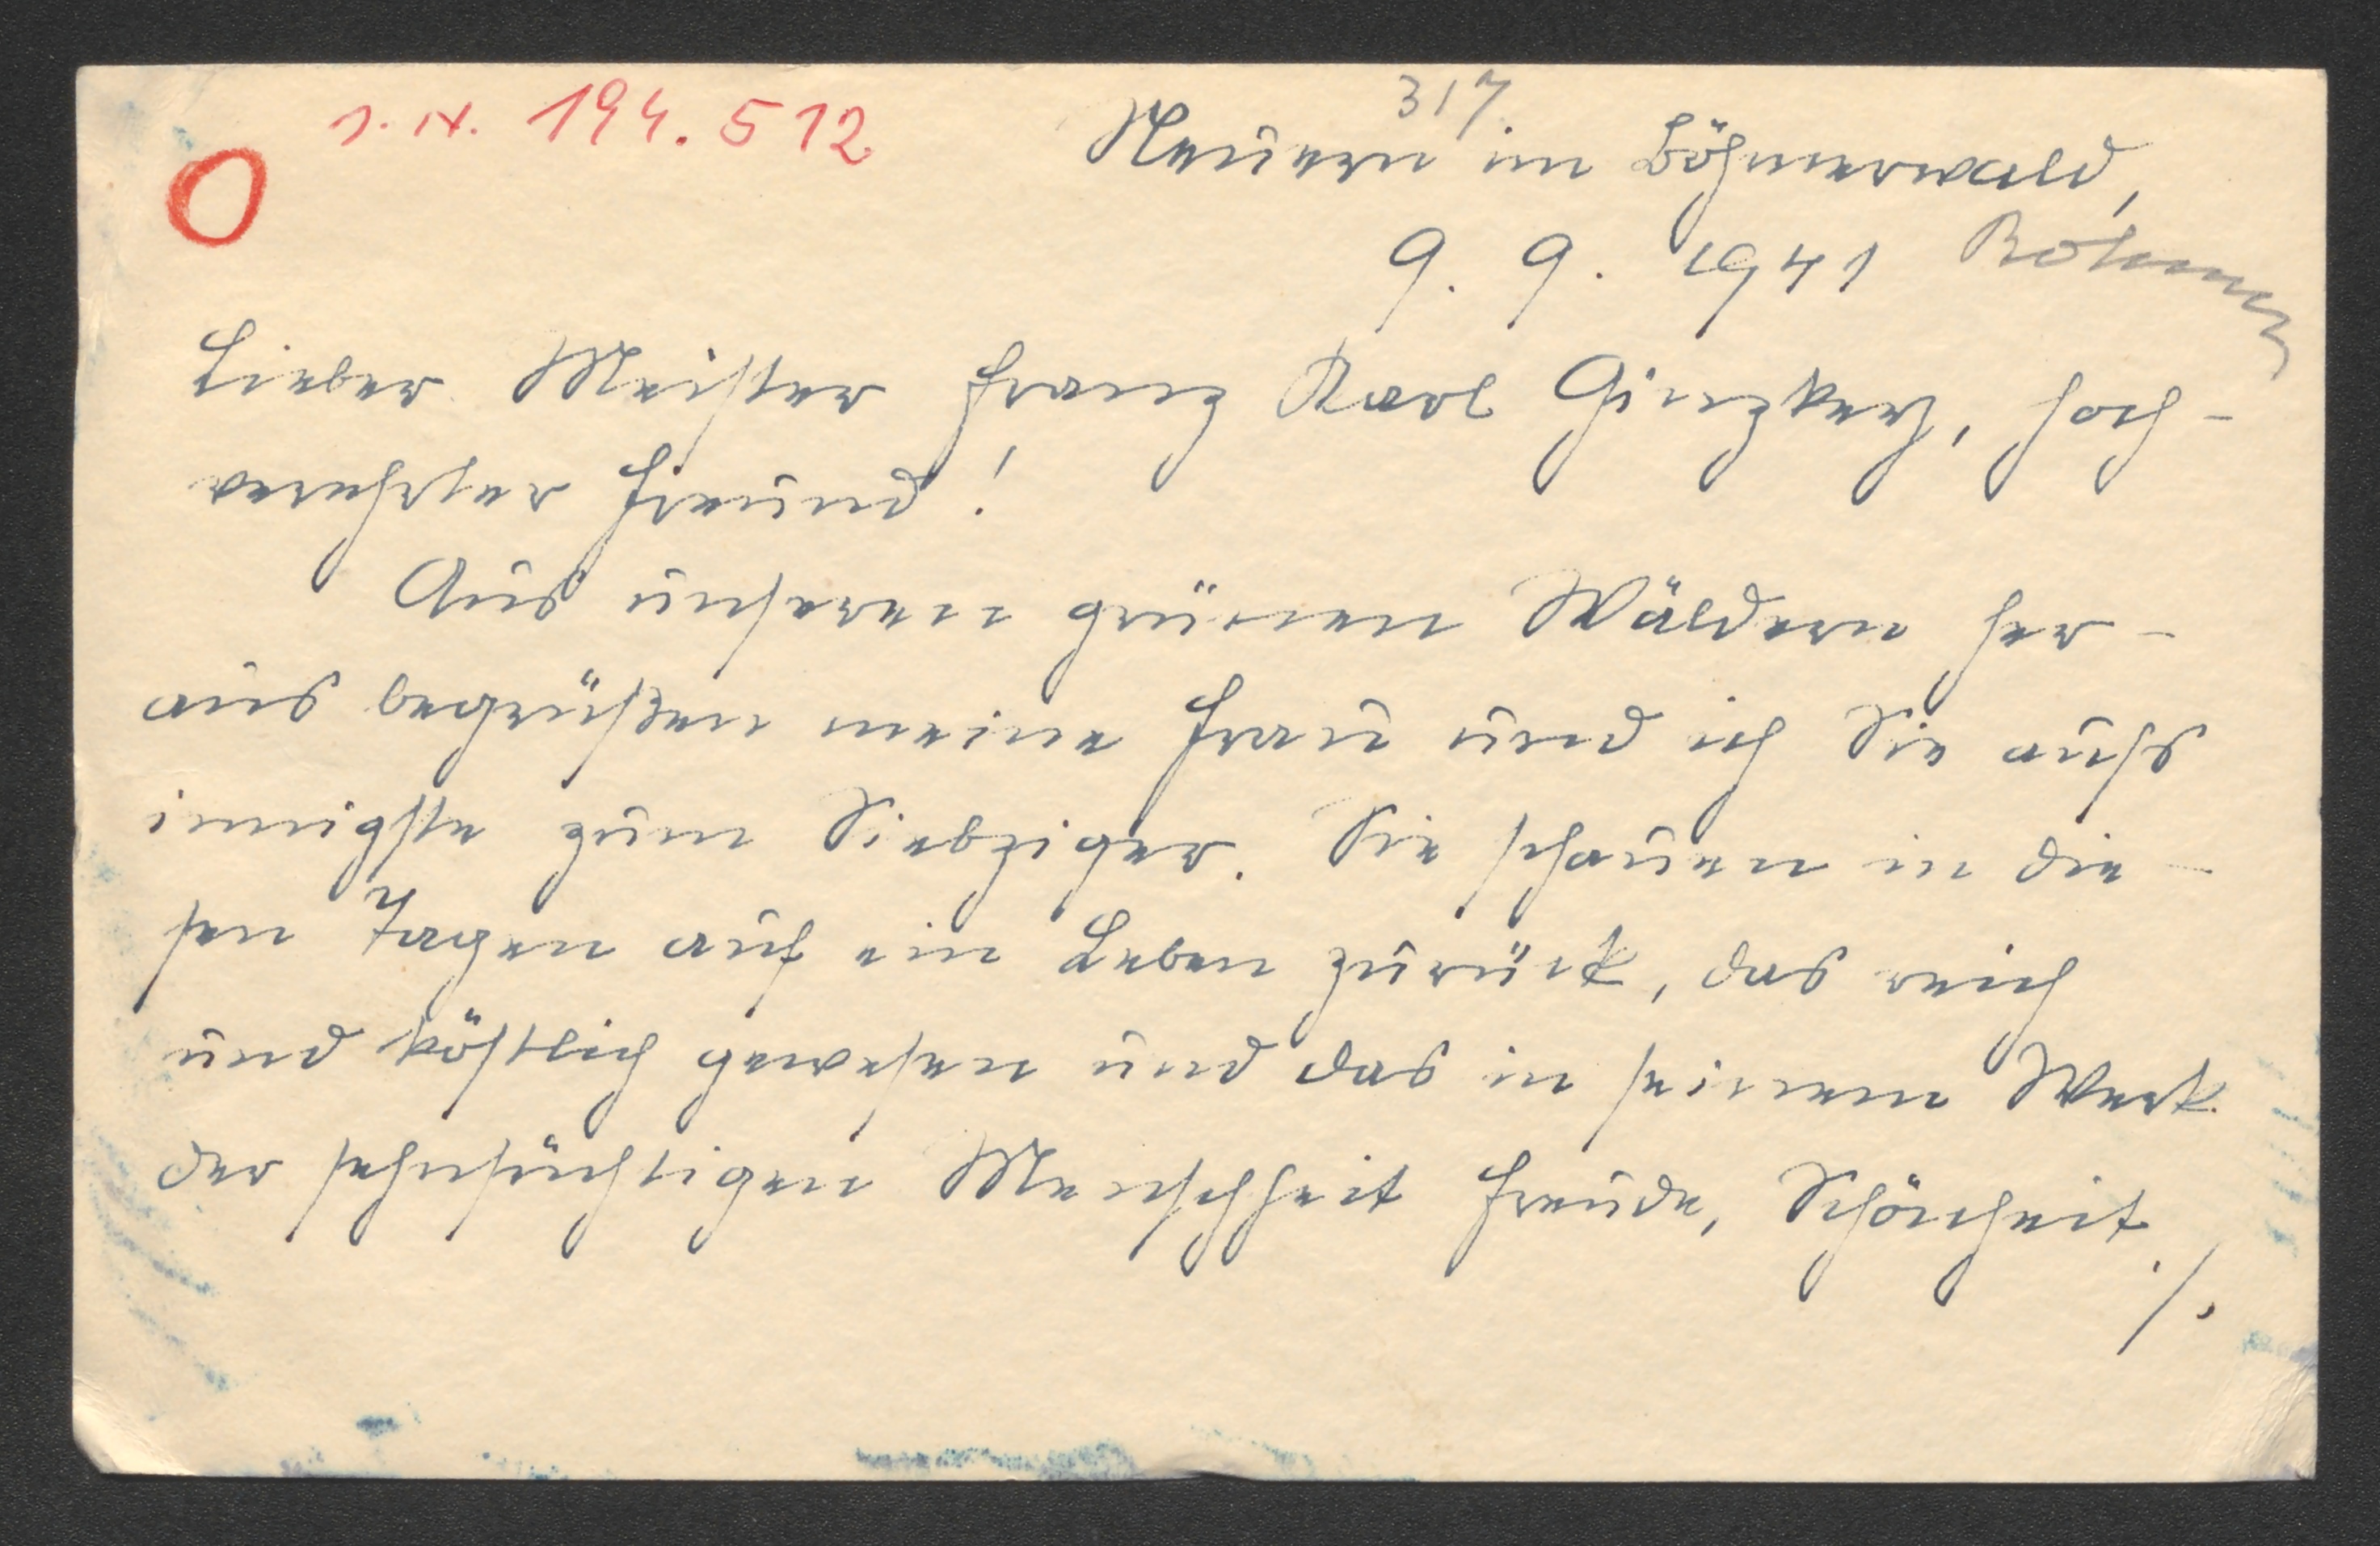 J. N. 194.512
317
Neuern im Böhmerwald,
9. 9. 1941
Lieber Meister Franz Karl Ginzkey, hoch-
verehrter Freund!
Aus unseren grünen Wäldern her-
aus begrüßen meine Frau und ich Sie aufs
innigste zum Siebziger. Sie schauen in die-
sen Tagen auf ein Leben zurück, das reich
und köstlich gewesen und das in seinem Werk
der sehnsüchtigen Menschheit Freude, Schönheit
./.